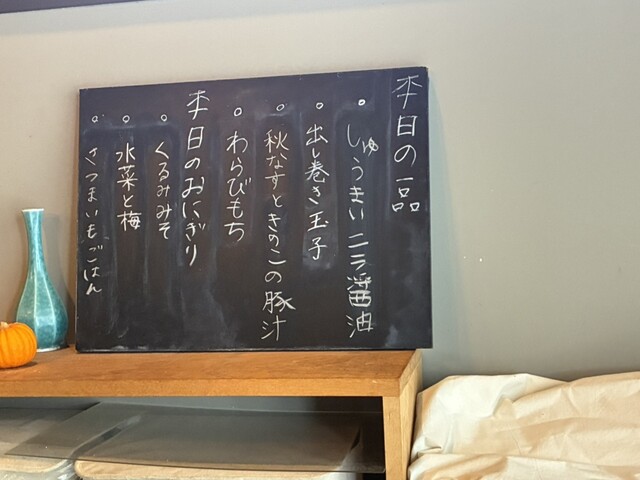 本日の一品
○しゅうまいニラ醤油
○出し巻き玉子
○秋なすときのこの豚汁
○わらびもち
本日のおにぎり
○くるみみそ
○水菜と梅
○さつまいもごはん